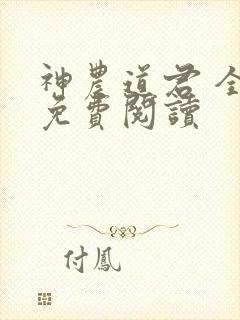 神農道君 全
免費閱讀
付鳳